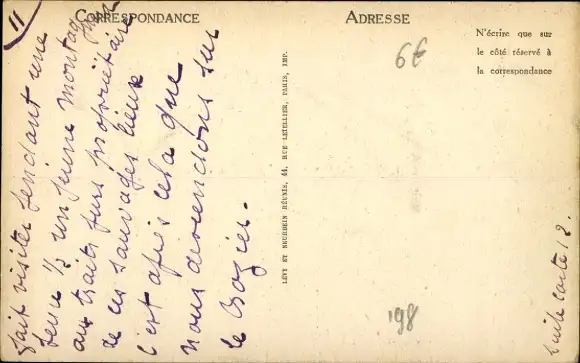 CORRESPONDANCE
ADRESSE
N'écrire que sur
le côté réservé à
la correspondance
LÉVY ET NEURDEIN RÉUNIS, 44, RUE LETELLIER, PARIS, IMP.
11
6€
198
fait visiter pendant une
heure ½ un jeune montagnard
aux traits purs propriétaire
de ces sauvages lieux
c'est après cela que
nous descendons sur
le Rozier.
Suite carte 12.